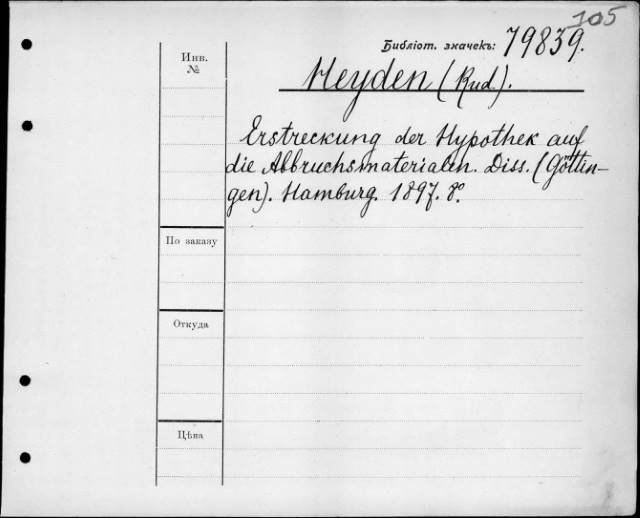 105
Библіот. значекъ: 79839.
Инв.
№
Heyden (Rud.).
Erstreckung der Hypothek auf
die Abbruchsmaterialen. Diss. (Göttin-
gen). Hamburg. 1897. 8º.
По заказу
Откуда
Цѣна